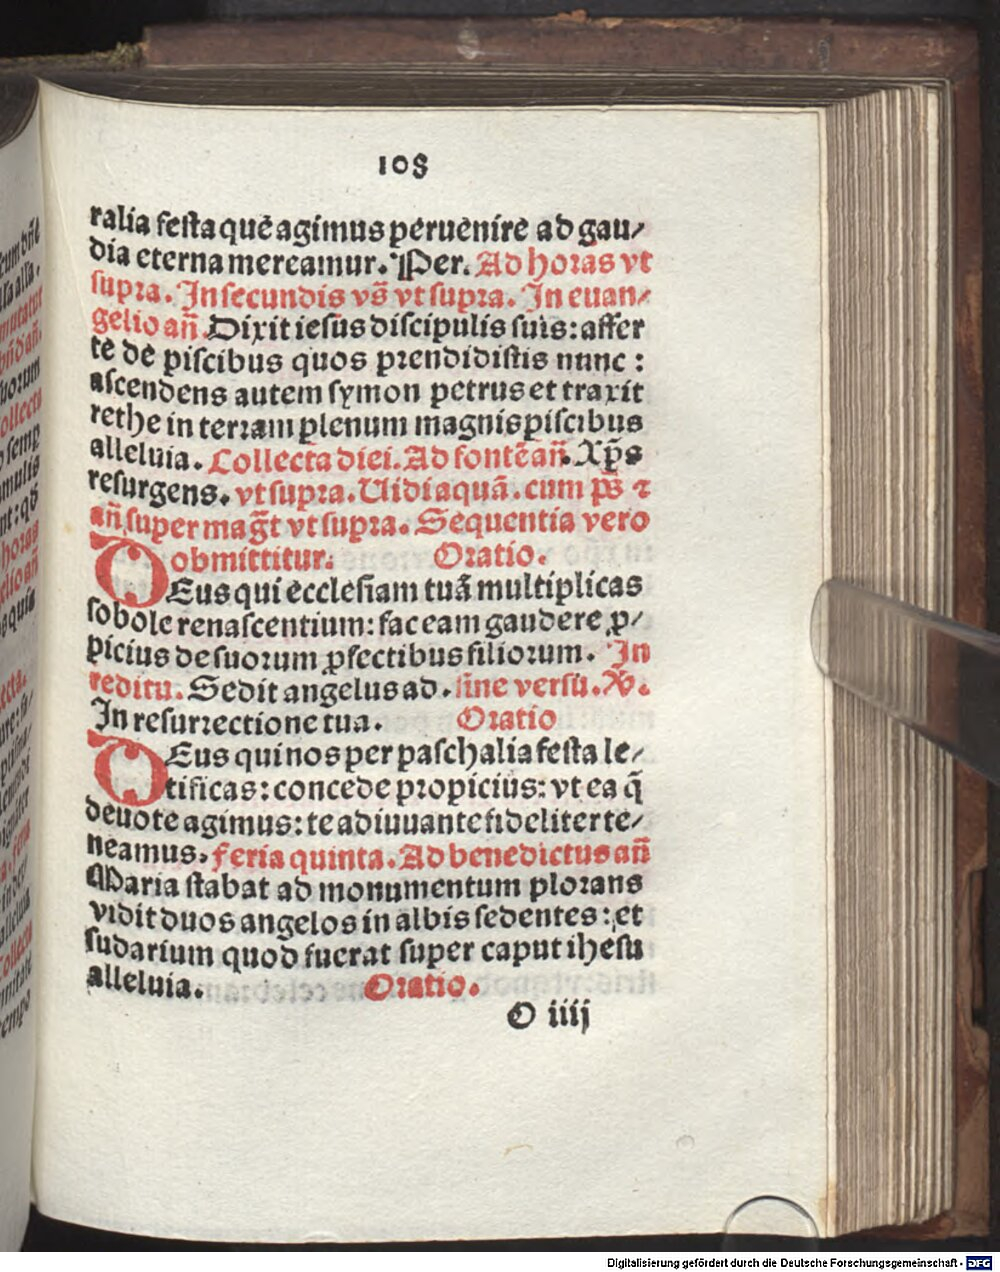 108
ralia festa que agimus peruenire ad gau⸗
dia eterna mereamur. Per. Ad horas vt
supra. In secundis vs̄ vt supra. In euan⸗
gelio an̄. Dixit iesus discipulis suis: affer
te de piscibus quos prendidistis nunc:
ascendens autem symon petrus et traxit
rethe in terram plenum magnis piscibus
alleluia. Collecta diei. Ad fontē an̄. Xp̄s
resurgens. vt supra. Uidi aquā. cum ps̄ ⁊
an̄ super mag̅t vt supra. Sequentia vero
obmittitur. Oratio.
DEus qui ecclesiam tuā multiplicas
sobole renascentium: fac eam gaudere ꝓ⸗
picius de suorum ꝓfectibus filiorum. In
reditu. Sedit angelus ad. sine versu. ℣.
In resurrectione tua. Oratio
DEus qui nos per paschalia festa le⸗
tificas: concede propicius: vt ea q̄
deuote agimus: te adiuuante fideliter te⸗
neamus. feria quinta. Ad benedictus an̄
Maria stabat ad monumentum plorans
vidit duos angelos in albis sedentes: et
sudarium quod fuerat super caput ihesu
alleluia. Oratio.
O iiij
Digitalisierung gefördert durch die Deutsche Forschungsgemeinschaft - DFG